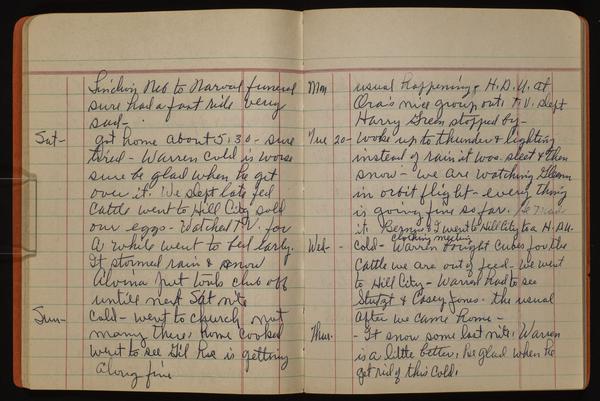 Neb to Norvall funeral
sure had a fast ride very
sad -
Sat- got home about 5:30 - sure
tired - Warren cold is worse
sure be glad when he get
over it. We slept late fed
Cattle went to Hill City sold
our eggs - Watched T.V. for
a while went to bed early.
It stormed rain & snow
Alvina put club off
untill next Sat nite
Sun- Cold - went to church not
many there, home cooked
went to see Gil he is getting
along fine
Mon usual happening, H.D.U. at
Ora's nice group out. T.V. slept
Harry Green stopped by -
Tue 20- Woke up to thunder & lighting
instead of rain it was sleet & then
snow - we are watching Glenn
in orbit flight - every thing
is going fine so far. He made
it. Bernice & I went to Hill City to a H.D.U.
clothing meeting
Wed- - Cold - Warren bright Cubes for the
Cattle we are out of feed - We went
to Hill City - Warren had to see
Stutzt & Casey Jones. The usual
after we came home -
Thur. - It snow some last nite, Warren
is a little better, be glad when he
get rid of this Cold.